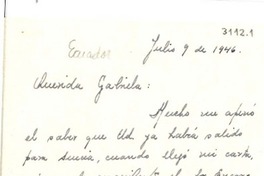 3112.1
Ecuador
Julio 9 de 1946.
Querida Gabriela:
Mucho me apenó
el saber que Ud. ya había salido
para Suecia, cuando llegó mi carta,